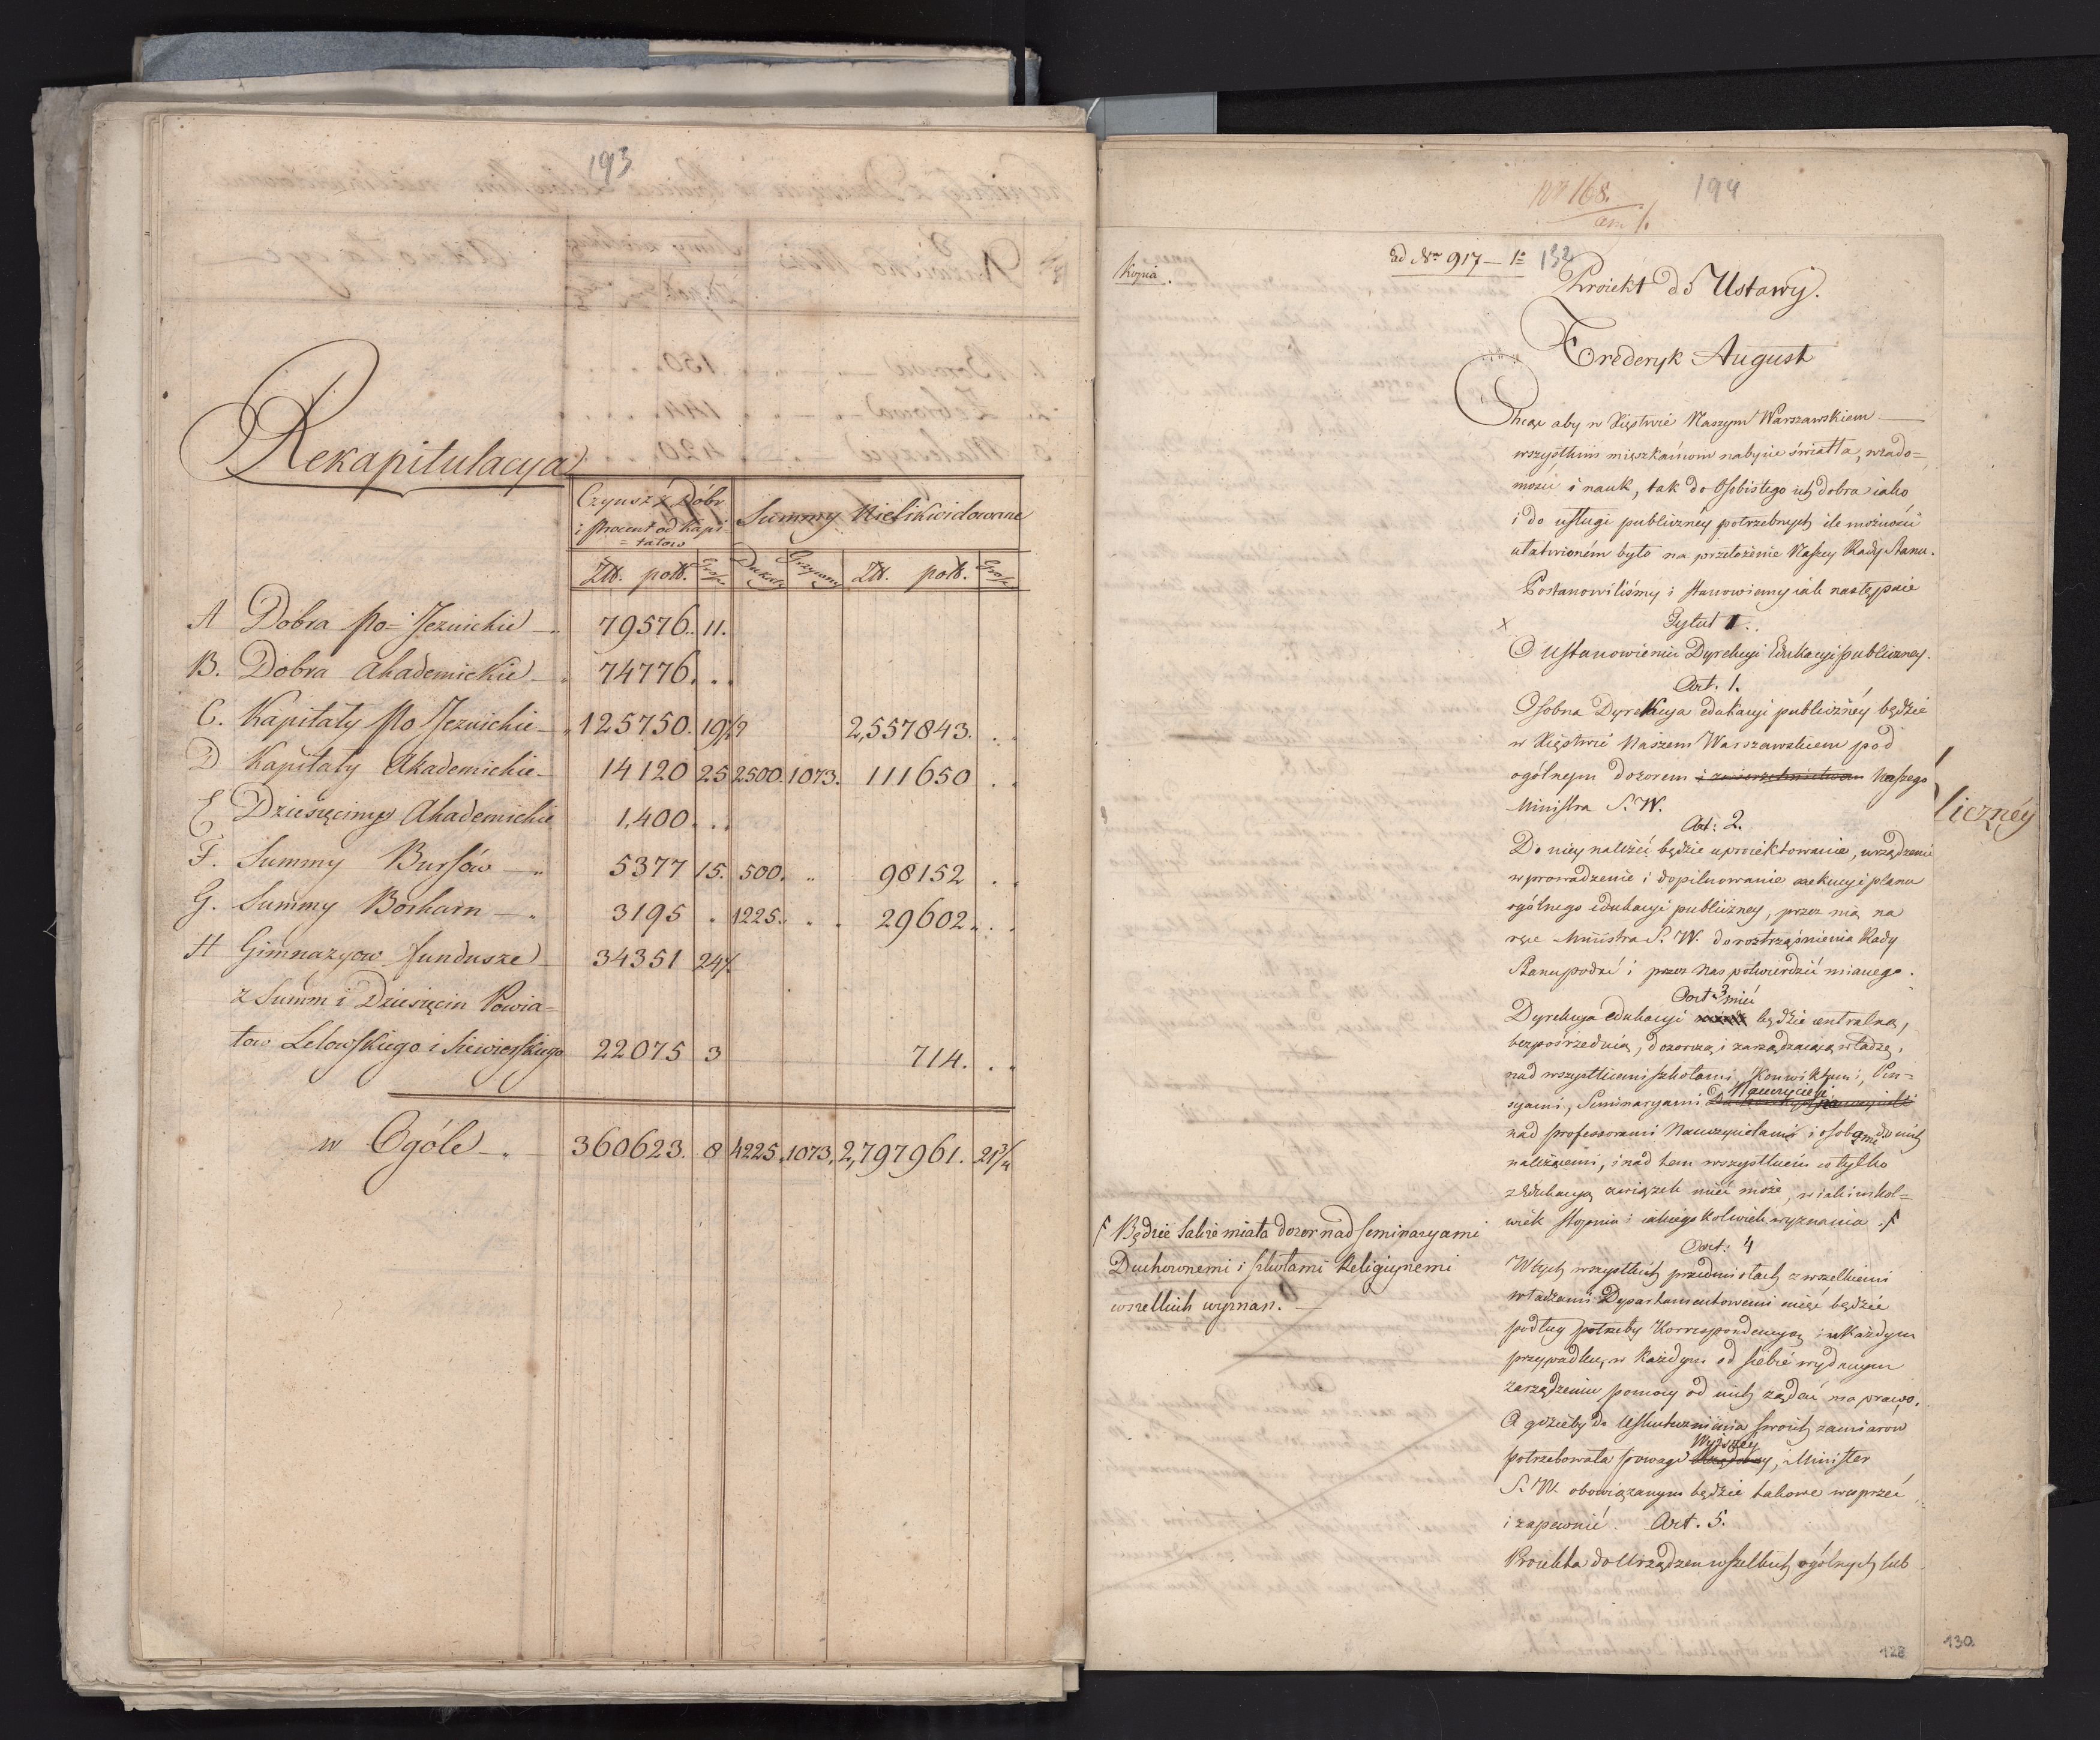 193
Rekapitulacya
Czynsz z Dóbr
i Procent od Kapi
=tałow
Summy Nielikwidowane
Zł. pols. Grosz. Dukaty Grzywny Zł. pols. Grosz.
A Dobra Po-Jezuickie 79576. 11.
B. Dobra Akademickie 74776. . .
C. Kapitały Po Jezuickie 125750. 19 1/2 2,557843. . .
D Kapitały Akademickie 14120 25 2500. 1073. 111650 . .
E Dziesięciny Akademickie 1,400 . . .
F. Summy Bursów 5377 15. 500. " 98152 . .
G. Summy Borkarn 3195 . 1225. . . 29602 . .
H Gimnazyow fundusze 34351 24
z Summ i Dziesięcin Powia=
tow Lelowskiego i Siewierskiego 22075 3 714. . .
w Ogóle 360623. 8 4225. 1073. 2,797961. 21 3/4
No 168.
194
Kopia.
ad Nro 917 — 1
132
Proiekt do Ustawy.
Frederyk August
Chcąc aby w Xięstwie Naszym Warszawskiem
wszystkim mieszkańcom nabycie światła, wiado=
mości i nauk, tak do Osobistego ich dobra iako
i do usługi publiczney potrzebnych ile możności
ułatwioném było na przełożenie Naszey Rady Stanu.
Postanowiliśmy i stanowiemy iak następuie
x Tytuł I.
O Ustanowieniu Dyrekcyi Edukacyi publiczney.
Art. 1.
Osobna Dyrekcya edukacyi publiczney będzie
w Xięstwie Naszem Warszawskiem pod
ogólnym dozorem i zwierzchnictwem Naszego
Ministra S. W.
Art: 2.
Do niey należéć będzie uproiektowanie, urządzenie
wprowadzenie i dopilnowanie exekucyi planu
ogólnego edukacyi publiczney, przez nią na
ręce Ministra S. W. do roztrząśnienia Rady
Stanu podać i przez Nas potwierdzić mianego.
Art. 3
mieć
Dyrekcya edukacyi będzie centralną,
bezpośrzednią, dozorczą i zarządzaiącą władzę,
nad wszystkiemi szkołami, Konwiktami, Pen=
Nauczycieli
syami, Seminaryami
nad professorami Nauczycielami i osobami do nich
należącemi, i nad tem wszystkiem co tylko
z Edukacyą związek mieć może, w iakimkol=
wiek stopniu i iakiegokolwiek wyznania. f
f Będzie także miała dozor nad seminaryami
Duchownemi i szkołami Religiynemi
wszelkich wyznań. —
Art: 4
W tych wszystkich przedmiotach z wszelkiemi
władzami Departamentowemi mieć będzie
podług potrzeby Korrespondencyą i w Każdym
przypadku, w Każdym od siebie wydanym
zarządzeniu pomocy od nich żądać ma prawo.
A gdzieby do Uskutecznienia swoich zamiarow
Wyższey
potrzebowała powagi Rządowey, Minister
S. W. obowiązanym będzie takowe wesprzeć
i zapewnić. Art. 5.
Proiekta do Urządzeń wszelkich ogólnych lub
liczney
128
130